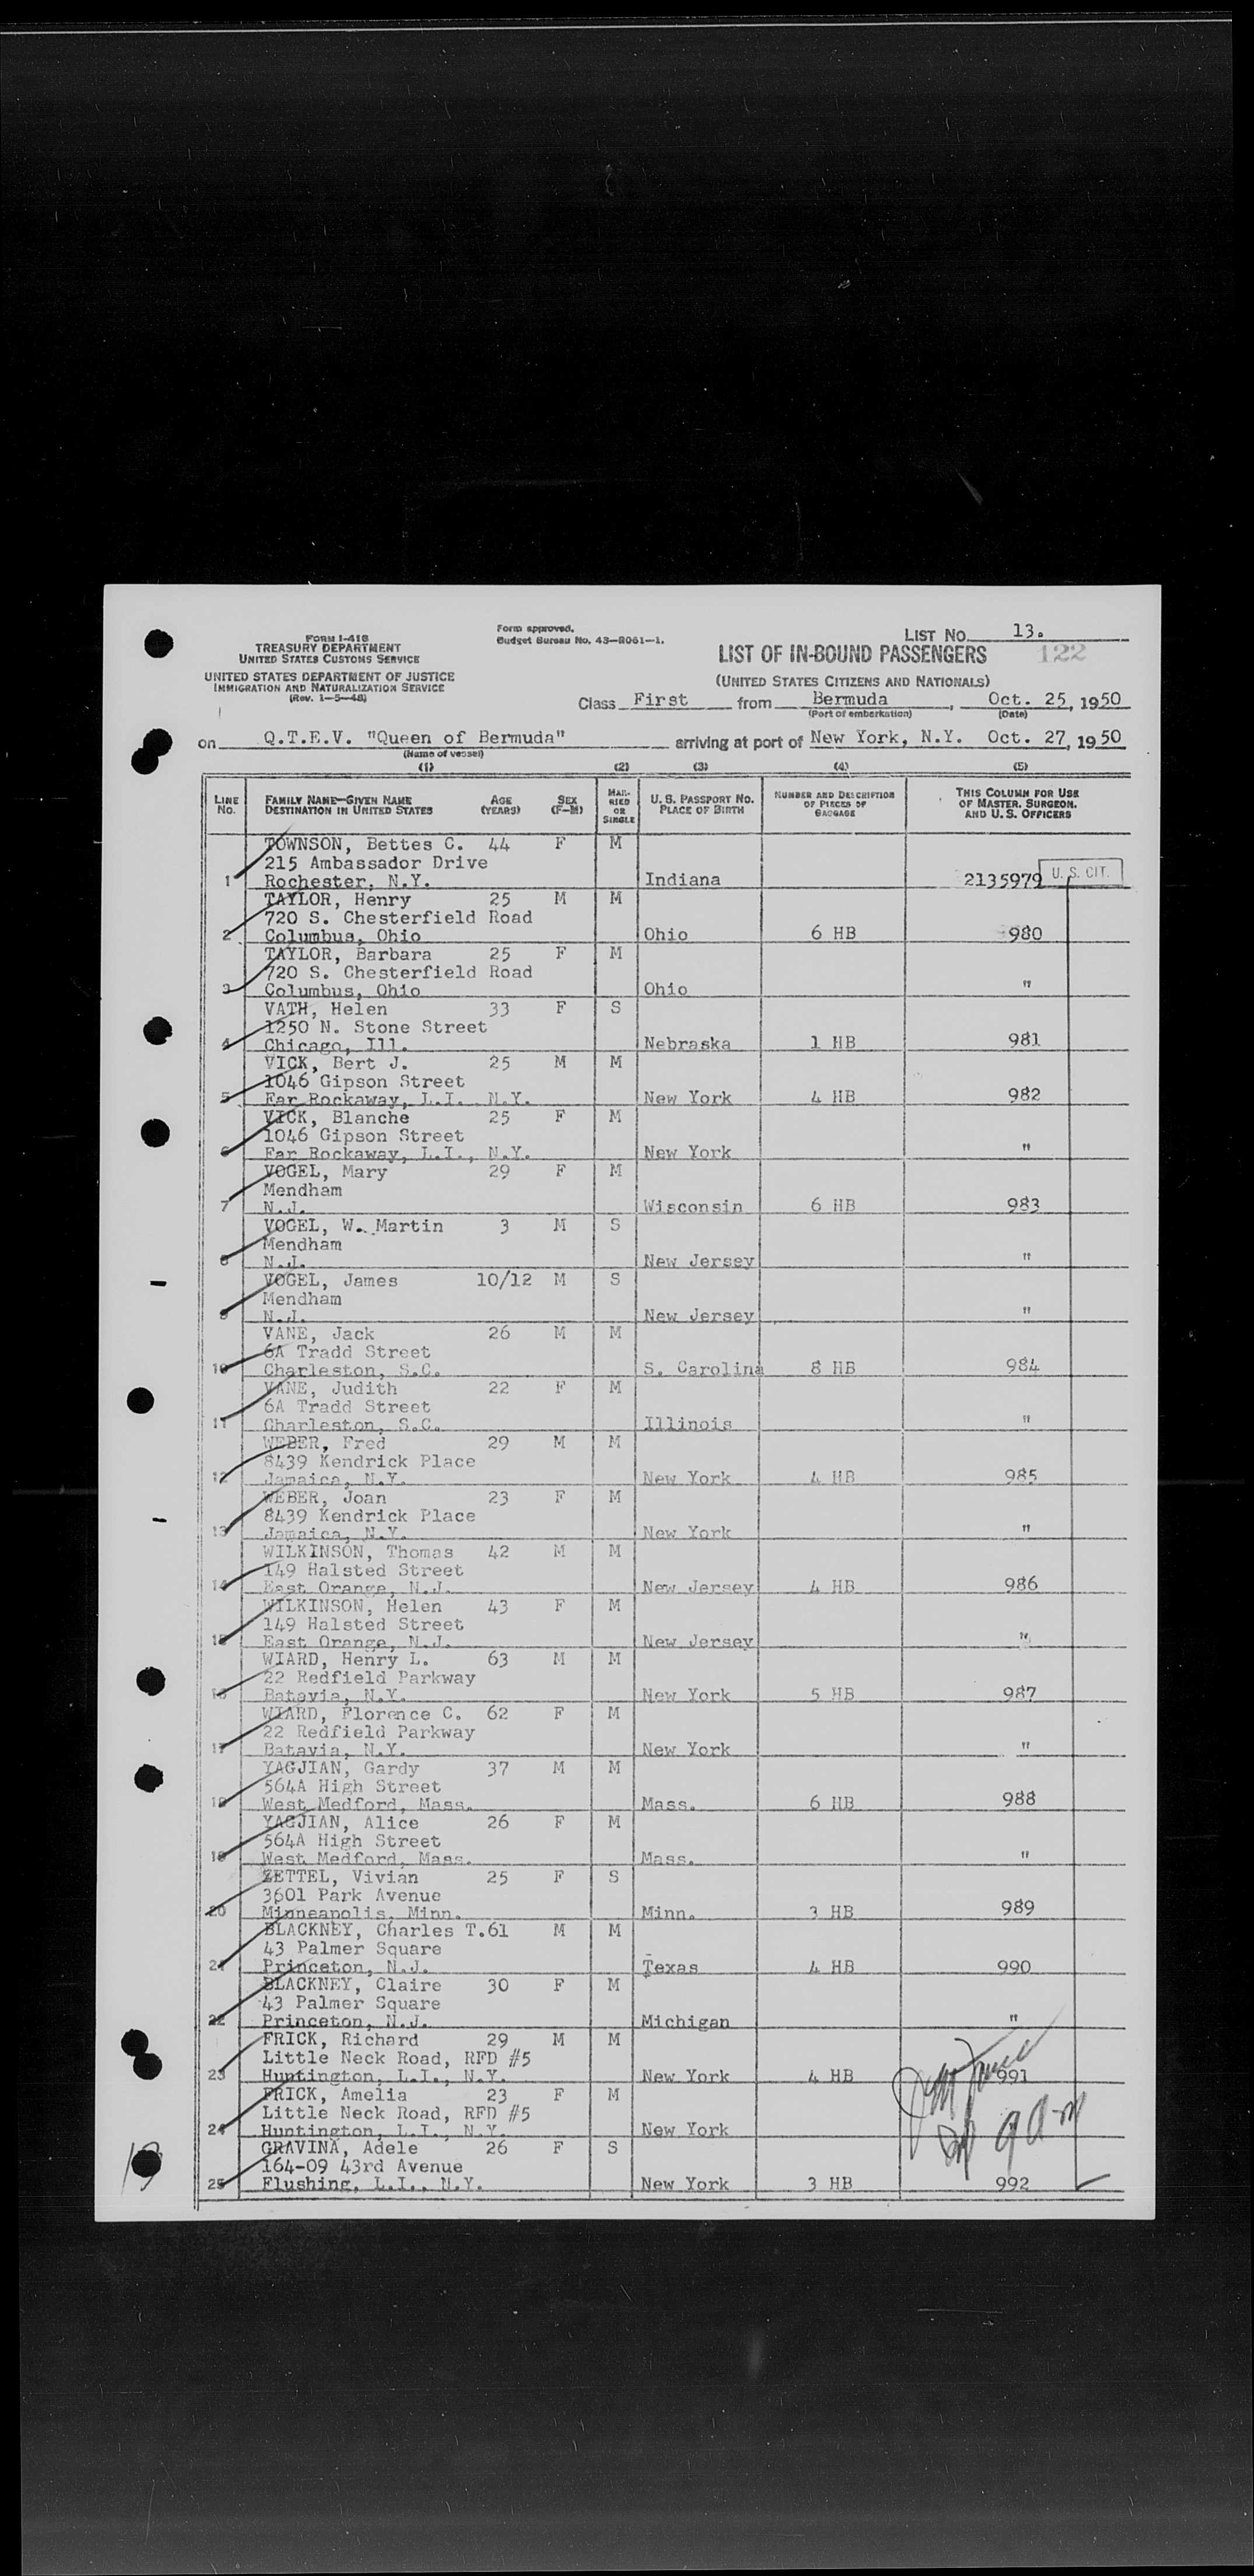 FORM I-418
TREASURY DEPARTMENT
UNITED STATES CUSTOMS SERVICE
UNITED STATES DEPARTMENT OF JUSTICE
IMMIGRATION AND NATURALIZATION SERVICE
(Rev. 1-5-48)
Form approved.
Budget Bureau No. 43-R061-1.
LIST NO. 13.
LIST OF IN-BOUND PASSENGERS 122
(UNITED STATES CITIZENS AND NATIONALS)
Class First from Bermuda, Oct. 25, 1950
(Port of embarkation) (Date)
on Q.T.E.V. "Queen of Bermuda" arriving at port of New York, N.Y. Oct. 27, 1950
(Name of vessel)
(1) (2) (3) (4) (5)
LINE NO. FAMILY NAME—GIVEN NAME DESTINATION IN UNITED STATES AGE (YEARS) SEX (F-M) MARRIED OR SINGLE U. S. PASSPORT NO. PLACE OF BIRTH NUMBER AND DESCRIPTION OF PIECES OF BAGGAGE THIS COLUMN FOR USE OF MASTER, SURGEON, AND U. S. OFFICERS
TOWNSON, Bettes C. 44 F M
215 Ambassador Drive
1 Rochester, N.Y. Indiana 2135979 U. S. CIT.
TAYLOR, Henry 25 M M
720 S. Chesterfield Road
2 Columbus, Ohio Ohio 6 HB 980
TAYLOR, Barbara 25 F M
720 S. Chesterfield Road
3 Columbus, Ohio Ohio "
VATH, Helen 33 F S
1250 N. Stone Street
4 Chicago, Ill. Nebraska 1 HB 981
VICK, Bert J. 25 M M
1046 Gipson Street
5 Far Rockaway, L.I. N.Y. New York 4 HB 982
VICK, Blanche 25 F M
1046 Gipson Street
6 Far Rockaway, L.I., N.Y. New York "
VOGEL, Mary 29 F M
Mendham
7 N.J. Wisconsin 6 HB 983
VOGEL, W. Martin 3 M S
Mendham
8 N.J. New Jersey "
VOGEL, James 10/12 M S
Mendham
9 N.J. New Jersey "
VANE, Jack 26 M M
6A Tradd Street
10 Charleston, S.C. S. Carolina 8 HB 984
VANE, Judith 22 F M
6A Tradd Street
11 Charleston, S.C. Illinois "
WEBER, Fred 29 M M
8439 Kendrick Place
12 Jamaica, N.Y. New York 4 HB 985
WEBER, Joan 23 F M
8439 Kendrick Place
13 Jamaica, N.Y. New York "
WILKINSON, Thomas 42 M M
149 Halsted Street
14 East Orange, N.J. New Jersey 4 HB 986
WILKINSON, Helen 43 F M
149 Halsted Street
15 East Orange, N.J. New Jersey "
WIARD, Henry L. 63 M M
22 Redfield Parkway
16 Batavia, N.Y. New York 5 HB 987
WIARD, Florence C. 62 F M
22 Redfield Parkway
17 Batavia, N.Y. New York "
YAGJIAN, Gardy 37 M M
564A High Street
18 West Medford, Mass. Mass. 6 HB 988
YAGJIAN, Alice 26 F M
564A High Street
19 West Medford, Mass. Mass. "
ZETTEL, Vivian 25 F S
3601 Park Avenue
20 Minneapolis, Minn. Minn. 3 HB 989
BLACKNEY, Charles T. 61 M M
43 Palmer Square
21 Princeton, N.J. Texas 4 HB 990
BLACKNEY, Claire 30 F M
43 Palmer Square
22 Princeton, N.J. Michigan "
FRICK, Richard 29 M M
Little Neck Road, RFD #5
23 Huntington, L.I., N.Y. New York 4 HB 991
FRICK, Amelia 23 F M
Little Neck Road, RFD #5
24 Huntington, L.I., N.Y. New York "
GRAVINA, Adele 26 F S
164-09 43rd Avenue
25 Flushing, L.I., N.Y. New York 3 HB 992
13